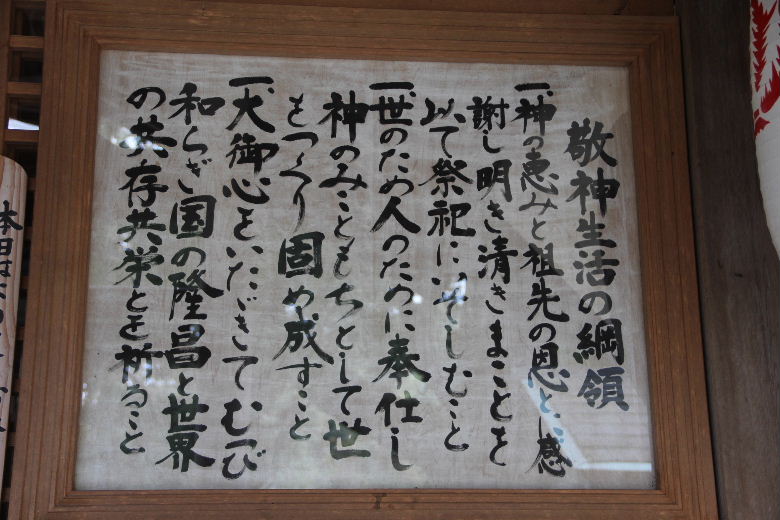 敬神生活の綱領
一、神の恵みと祖先の恩とに感
謝し明き清きまことを
以て祭祀にいそしむこと
一、世のため人のために奉仕し
神のみこともちとして世
をつくり固め成すこと
一、大御心をいただきてむつび
和らぎ国の隆昌と世界
の共存共栄とを祈ること
本日は